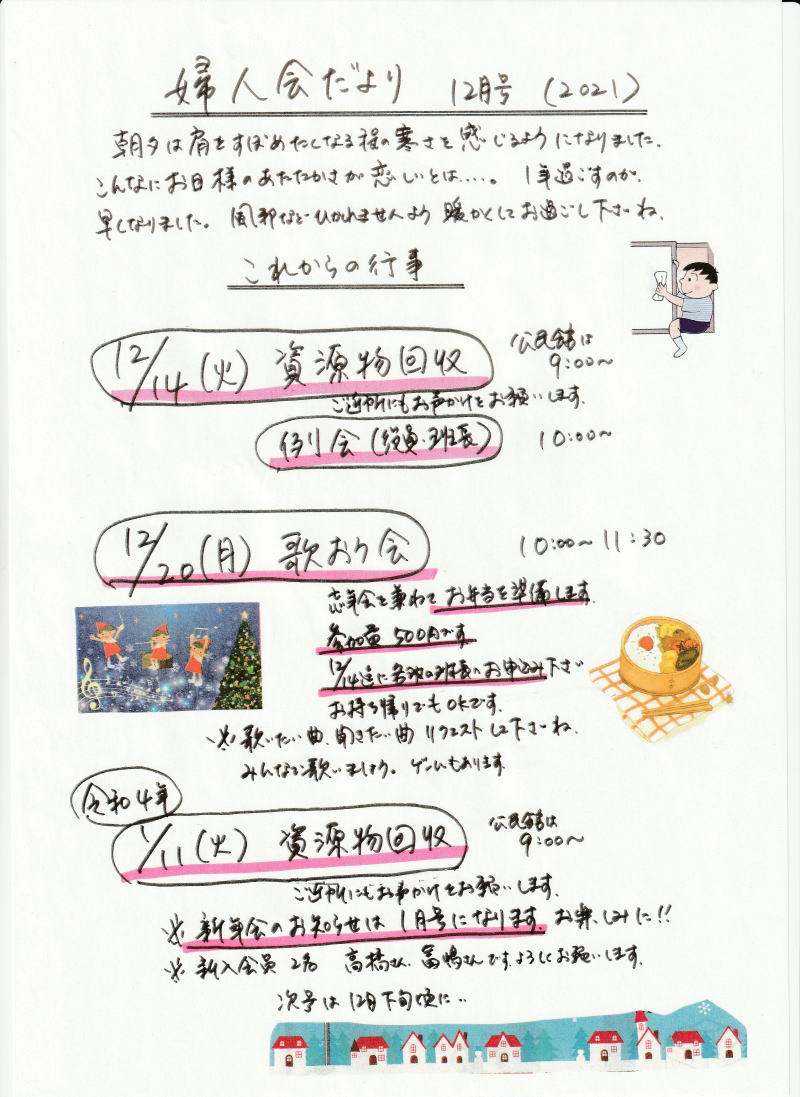 婦人会だより 12月号 (2021)
朝夕は肩をすぼめたくなる程の寒さを感じるようになりました。
こんなにお日様のあたたかさが恋しいとは‥‥。 1年過ごすのが、
早くなりました。 風邪などひかれませんよう 暖かくしてお過ごし下さいね、
これからの行事
12/14 (火) 資源物回収
公民館は
9:00〜
ご近所にもお声かけをお願いします。
例会 (役員・班長) 10:00〜
12/20 (月) 歌おう会 10:00〜11:30
忘年会を兼ねて お弁当を準備します
参加費 500円です
12/14迄に各地の班長にお申込み下さい
お持ち帰りでもOKです.
※ 歌いたい曲、聞きたい曲 リクエストして下さいね、
みんなで歌いましょう。 ゲームもあります
令和4年
1/11 (火) 資源物回収
公民館は
9:00〜
ご近所にもお声かけをお願いします.
※ 新年会のお知らせは 1月号になります お楽しみに!!
※ 新入会員 2名 高橋さん、 さんです、よろしくお願いします.
次号は 12月下旬頃に‥